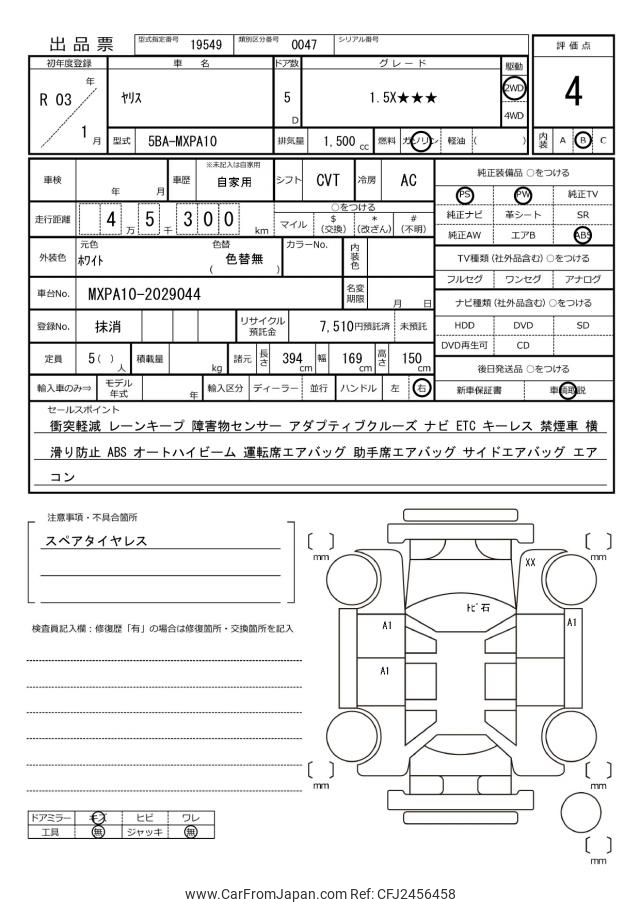 出品票 型式指定番号 19549 類別区分番号 0047 シリアル番号
評価点
4
内装 A B C
初年度登録 車名 ドア数 グレード 駆動
R 03 年 1 月
ヤリス 5 D 1.5X★★★ 2WD
4WD
型式 5BA-MXPA10 排気量 1,500 cc 燃料 ガソリン 軽油 ( )
車検 年 月 車歴 ※未記入は自家用 自家用 シフト CVT 冷房 AC
走行距離 4 万 5 千 3 0 0 km
○をつける
マイル $(交換) *(改ざん) #(不明)
外装色 元色 ホワイト 色替 ( 色替無 ) カラーNo. 内装色
車台No. MXPA10-2029044 名変期限 月 日
登録No. 抹消 リサイクル預託金 7,510円預託済 未預託
定員 5( )人 積載量 kg 諸元 長さ 394 cm 幅 169 cm 高さ 150 cm
輸入車のみ⇒ モデル年式 年 輸入区分 ディーラー 並行 ハンドル 左 右
純正装備品 ○をつける
PS PW 純正TV
純正ナビ 革シート SR
純正AW エアB ABS
TV種類(社外品含む) ○をつける
フルセグ ワンセグ アナログ
ナビ種類(社外品含む) ○をつける
HDD DVD SD
DVD再生可 CD
後日発送品 ○をつける
新車保証書 車輌取説
セールスポイント
衝突軽減 レーンキープ 障害物センサー アダプティブクルーズ ナビ ETC キーレス 禁煙車 横
滑り防止 ABS オートハイビーム 運転席エアバッグ 助手席エアバッグ サイドエアバッグ エア
コン
注意事項・不具合箇所
スペアタイヤレス
検査員記入欄：修復歴「有」の場合は修復箇所・交換箇所を記入
mm
mm
XX
トビ石
A1
A1
A1
mm
mm
mm
ドアミラー キズ ヒビ ワレ
工具 無 ジャッキ 無
www.CarFromJapan.com Ref: CFJ2456458